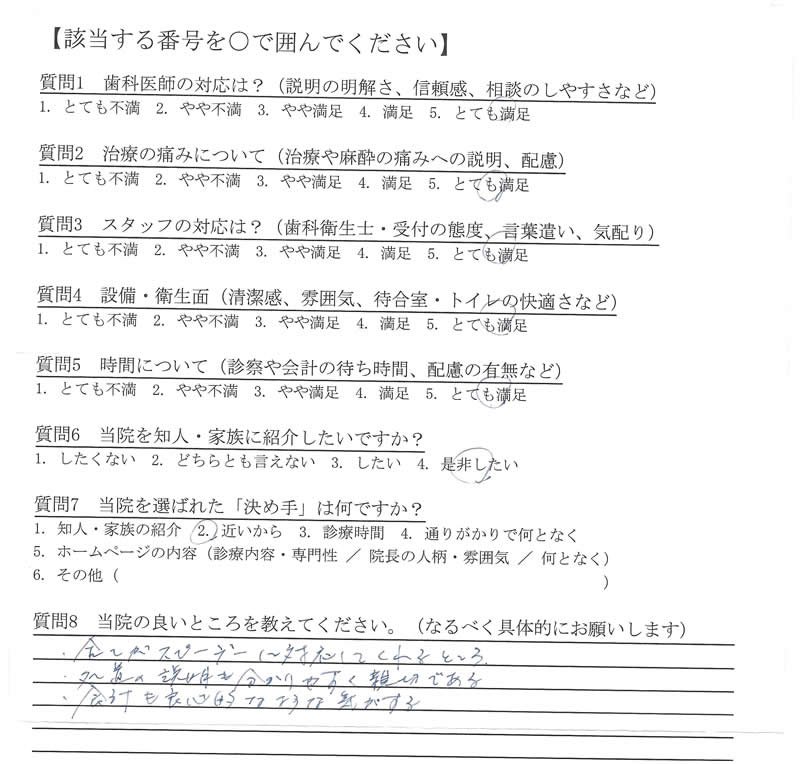 【該当する番号を○で囲んでください】
質問1 歯科医師の対応は？（説明の明解さ、信頼感、相談のしやすさなど）
1. とても不満 2. やや不満 3. やや満足 4. 満足 5. とても満足
質問2 治療の痛みについて（治療や麻酔の痛みへの説明、配慮）
1. とても不満 2. やや不満 3. やや満足 4. 満足 5. とても満足
質問3 スタッフの対応は？（歯科衛生士・受付の態度、言葉遣い、気配り）
1. とても不満 2. やや不満 3. やや満足 4. 満足 5. とても満足
質問4 設備・衛生面（清潔感、雰囲気、待合室・トイレの快適さなど）
1. とても不満 2. やや不満 3. やや満足 4. 満足 5. とても満足
質問5 時間について（診察や会計の待ち時間、配慮の有無など）
1. とても不満 2. やや不満 3. やや満足 4. 満足 5. とても満足
質問6 当院を知人・家族に紹介したいですか？
1. したくない 2. どちらとも言えない 3. したい 4. 是非したい
質問7 当院を選ばれた「決め手」は何ですか？
1. 知人・家族の紹介 2. 近いから 3. 診療時間 4. 通りがかりで何となく
5. ホームページの内容（診療内容・専門性 ／ 院長の人柄・雰囲気 ／ 何となく）
6. その他（ ）
質問8 当院の良いところを教えてください。（なるべく具体的にお願いします）
・全てがスピーディーに対応してくれるところ
・処置の説明も分かりやすく親切である
・会計も良心的なような気がする